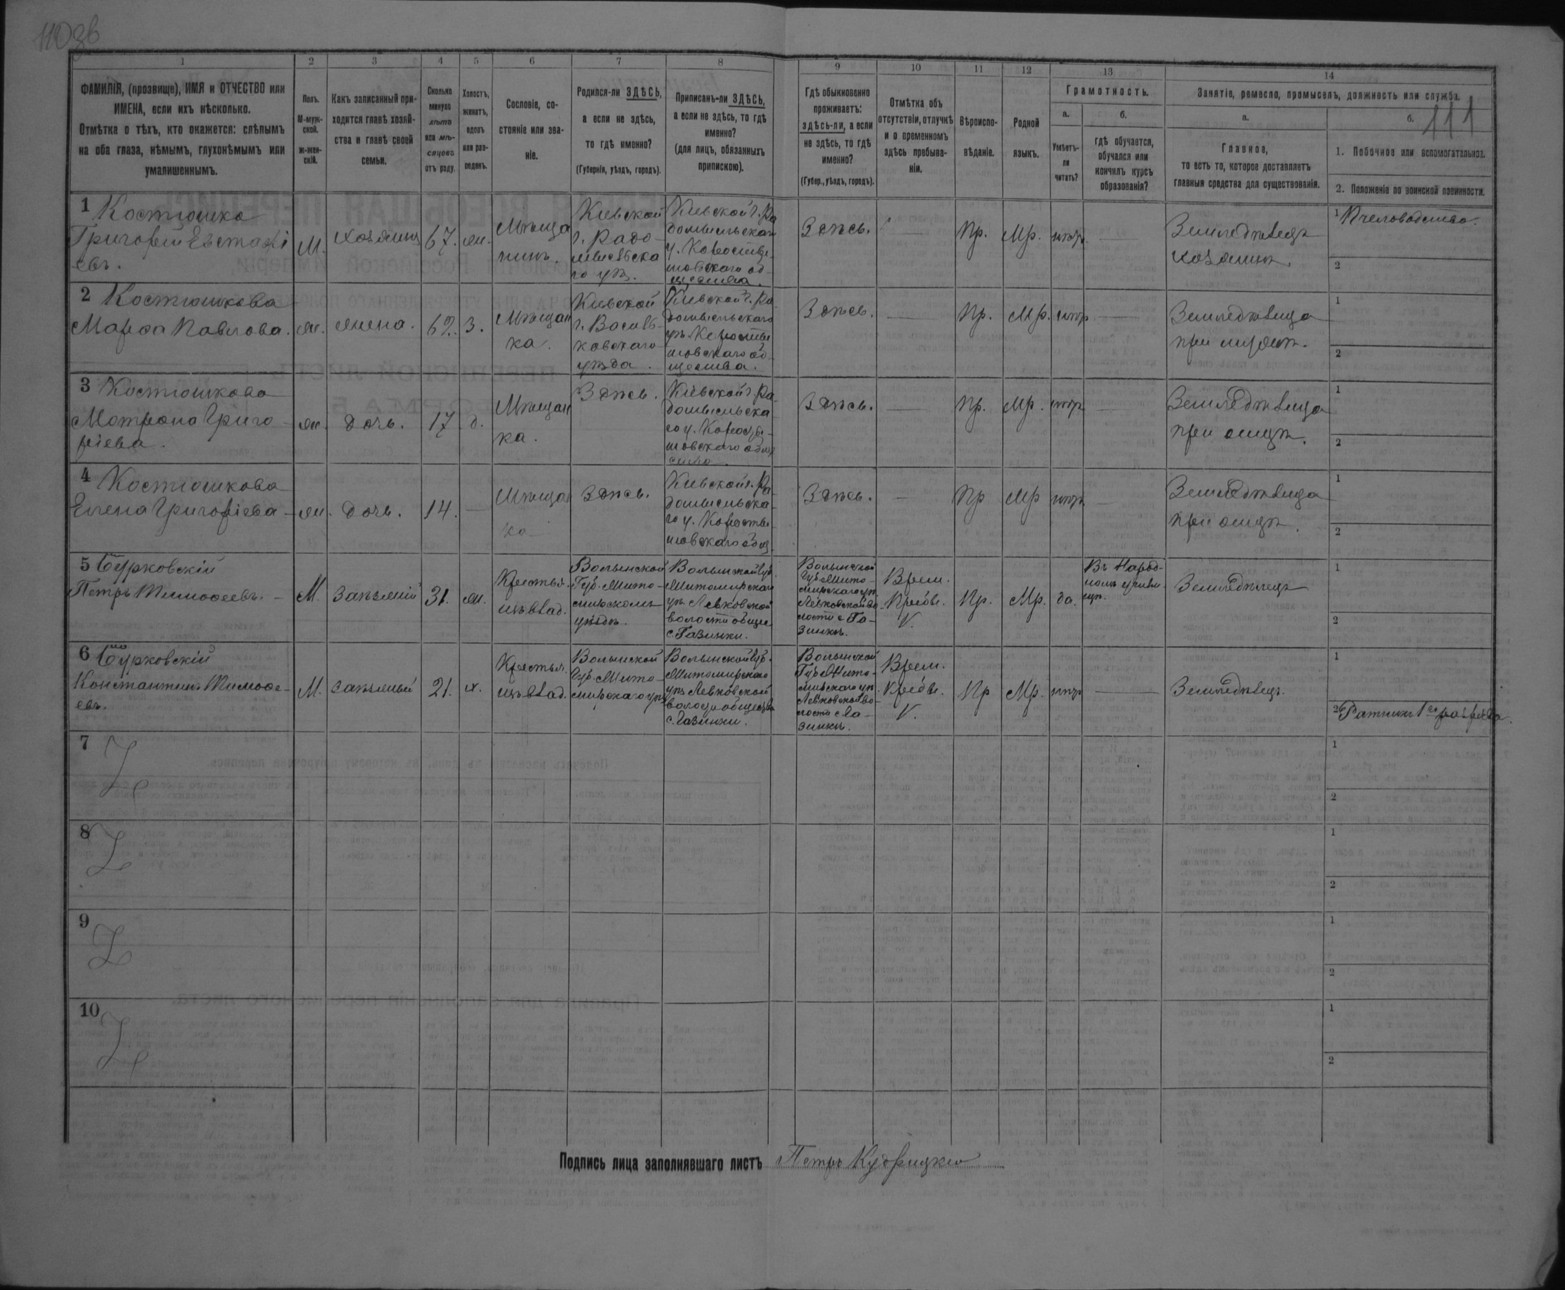 110зв
111
1
2
3
4
5
6
7
8
9
10
11
12
13
14
ФАМИЛІЯ, (прозвище), ИМЯ и ОТЧЕСТВО или
ИМЕНА, если ихъ нѣсколько.
Отмѣтка о тѣхъ, кто окажется: слѣпымъ
на оба глаза, нѣмымъ, глухонѣмымъ или
умалишеннымъ.
Полъ.
М-муж-
ской.
ж-жен-
скій.
Какъ записанный при-
ходится главѣ хозяй-
ства и главѣ своей
семьи.
Сколько
минуло
лѣтъ
или мѣ-
сяцевъ
отъ роду.
Холостъ,
женатъ,
вдовъ
или раз-
веденъ.
Сословіе, со-
стояніе или зва-
ніе.
Родился-ли ЗДѢСЬ,
а если не здѣсь,
то гдѣ именно?
(Губернія, уѣздъ, городъ).
Приписанъ-ли ЗДѢСЬ,
а если не здѣсь, то гдѣ
именно?
(для лицъ, обязанныхъ
припискою).
Гдѣ обыкновенно
проживаетъ:
здѣсь-ли, а если
не здѣсь, то гдѣ
именно?
(Губер., уѣздъ, городъ).
Отмѣтка объ
отсутствіи, отлучкѣ
и о временномъ
здѣсь пребыва-
ніи.
Вѣроиспо-
вѣданіе.
Родной
языкъ.
Грамотность.
а.
Умѣетъ-
ли
читать?
б.
гдѣ обучается,
обучался или
кончилъ курсъ
образованія?
Занятіе, ремесло, промыселъ, должность или служба.
а.
Главное,
то есть то, которое доставляетъ
главныя средства для существованія.
б.
1. Побочное или вспомогательное.
2. Положеніе по воинской повинности.
1 Костюшко
Григорій Евстафі
евъ.
М.
хозяинъ
67.
жн.
Мѣща
нинъ.
Кіевской
г. Радо-
мысльска
го уѣ.
Кіевской г. Ра
домысльскаго
у. Коросты-
шовскаго об-
щества.
Здѣсь.
Пр.
Мр.
нѣтъ
Земледѣлецъ
хозяинъ.
1 Пчеловодство.
2
2 Костюшкова
Марѳа Павлова.
жн.
жена.
62.
з.
Мѣщан
ка.
Кіевской
г. Василь-
ковскаго
уѣзда.
Кіевской г. Ра
домысльскаго
уѣ. Коросты
шовскаго об-
щества.
Здѣсь.
Пр.
Мр.
нѣтъ
Земледѣлица
при мужѣ.
1
2
3 Костюшкова
Мотрона Григо
ріева.
жн.
дочь.
17.
д.
Мѣщан
ка.
Здѣсь.
Кіевской г. Ра
домысльска
го у. Коросты-
шовскаго общ
Здѣсь.
Пр.
Мр.
нѣтъ
Земледѣлица
при отцѣ.
1
2
4 Костюшкова
Елена Григоріева
жн.
дочь.
14.
Мѣща
ка
Здѣсь.
Кіевской г. Ра-
домысльска-
го у. Коросты
шовскаго общ.
Здѣсь.
Пр
Мр
нѣтъ
Земледѣлица
при отцѣ.
1
2
5 Бурковскій
Петръ Тимоѳеевъ.
М.
Заѣзжій
31.
жн.
Волынской
Губ. Жито-
мірскомъ
уѣздѣ.
Волынской Губ.
Житомірскаго
уѣ. Левковской
волости общес
с. Газинки.
Волынской
Губ. Жито-
мірскаго уѣ.
Левковской во
лости с. Га-
зинкѣ.
Врем.
Пребѣ.
V.
Пр.
Мр.
да.
Въ Народ-
номъ учили
щѣ.
Земледѣлецъ
1
2
6 Бурковскій
Константинъ Тимоѳе-
евъ.
М.
21.
х.
Волынской
Губ. Жито-
мірскаго уѣ.
Волынской Губ.
Житомірскаго
уѣ. Левковской
волости общества
с. Газинки.
Волынской
Губ. Жито-
мірскаго уѣ.
Левковской во-
лости с. Га-
зинкѣ.
Врем.
Пребѣ.
V.
Пр
Мр.
нѣтъ
Земледѣлецъ.
1
2 Ратникъ 1го разряда.
7
1
2
8
1
2
9
1
2
10
1
2
Подпись лица заполнявшаго листъ Петръ